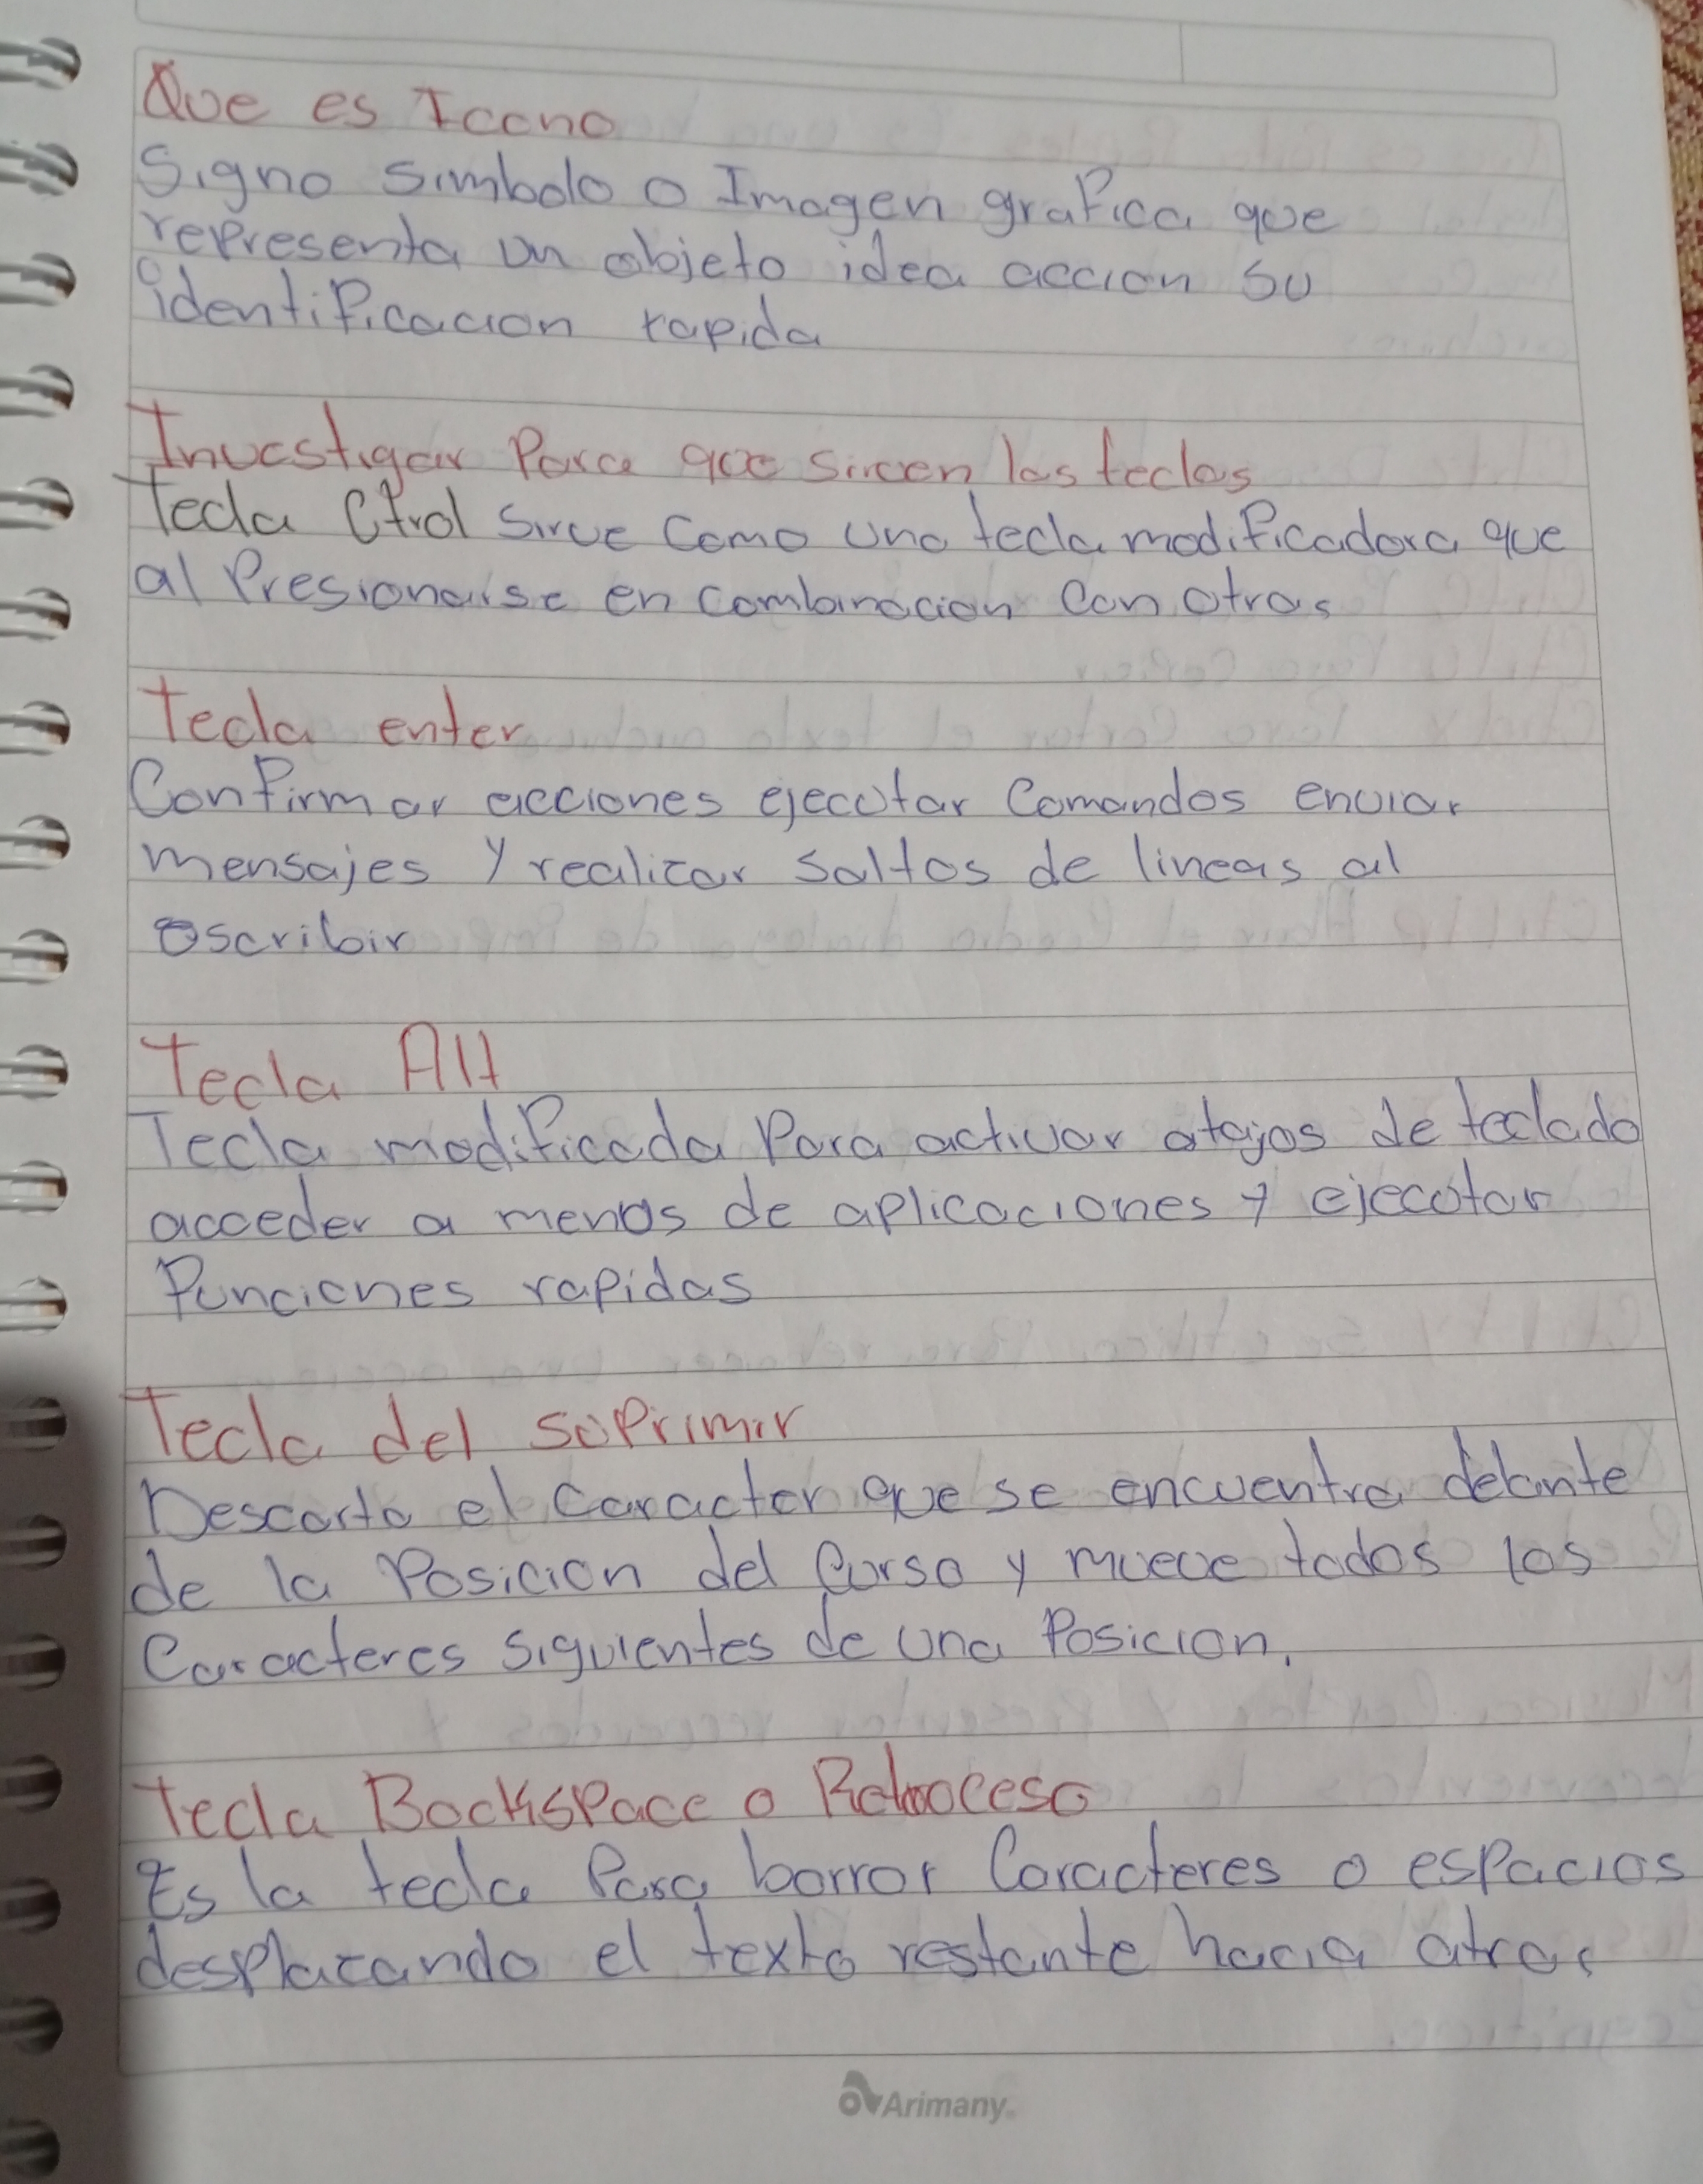 Que es Icono
Signo simbolo o Imagen grafica que
representa un objeto idea accion su
identificacion rapida
Investigar Para que sirven las teclas
Tecla Ctrol Sirve Como una tecla modificadora que
al Presionarse en combinacion Con otras
Tecla enter
Confirmar acciones ejecutar Comandos enviar
mensajes y realizar saltos de lineas al
escribir
Tecla Alt
Tecla modificada Para activar atajos de teclado
acceder a menos de aplicaciones y ejecutar
funciones rapidas
Tecla del suprimir
Descarta el caracter que se encuentra delante
de la Posicion del Curso y mueve todos los
Caracteres siguientes de una Posicion.
Tecla BackSpace o Retroceso
Es la tecla Para borrar Caracteres o espacios
desplazando el texto restante hacia atras
Arimany